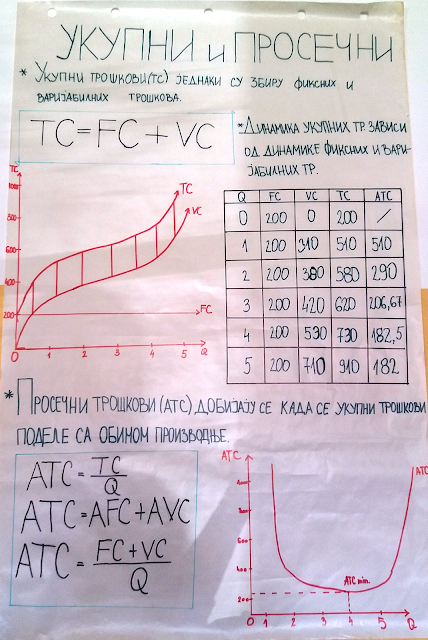 УКУПНИ И ПРОСЕЧНИ
* УКУПНИ ТРОШКОВИ (TC) ЈЕДНАКИ СУ ЗБИРУ ФИКСНИХ И
ВАРИЈАБИЛНИХ ТРОШКОВА.
TC=FC+VC
*ДИНАМИКА УКУПНИХ ТР. ЗАВИСИ
ОД ДИНАМИКЕ ФИКСНИХ И ВАРИ-
ЈАБИЛНИХ ТР.
TC
1000
800
600
400
200
0 1 2 3 4 5 Q
TC
VC
FC
Q FC VC TC ATC
0 200 0 200 /
1 200 310 510 510
2 200 380 580 290
3 200 420 620 206,67
4 200 530 730 182,5
5 200 710 910 182
* ПРОСЕЧНИ ТРОШКОВИ (ATC) ДОБИЈАЈУ СЕ КАДА СЕ УКУПНИ ТРОШКОВИ
ПОДЕЛЕ СА ОБИМОМ ПРОИЗВОДЊЕ.
ATC = TC/Q
ATC=AFC+AVC
ATC = FC+VC/Q
ATC
800
600
400
200
0 1 2 3 4 5 Q
ATC
ATC min.